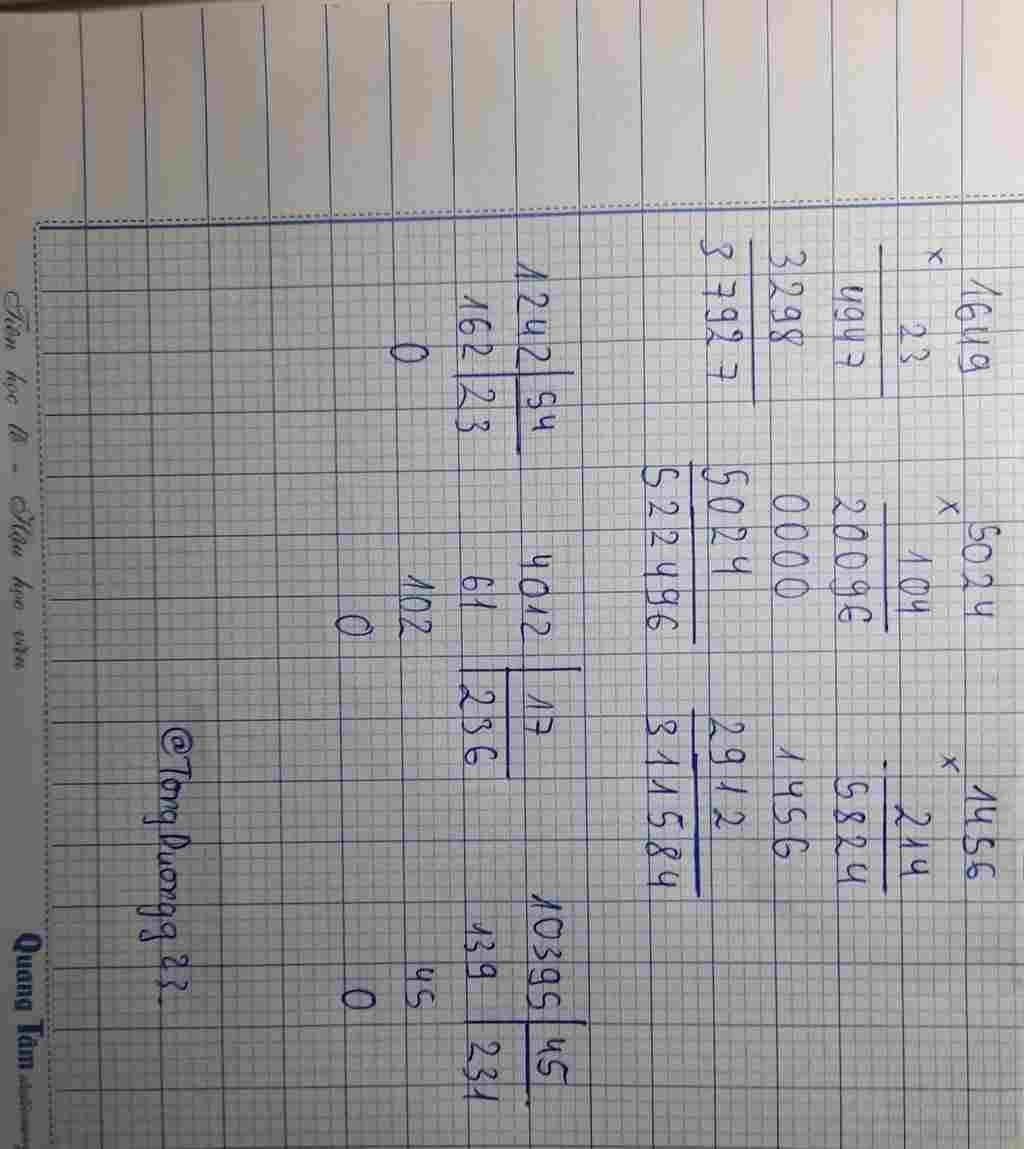 1649 5024 1456
× 23 × 104 × 214
4947 20096 5824
3298 0000 1456
37927 5024 2912
522496 311584
1242 54 4012 17 10395 45
162 23 61 236 139 231
0 102 45
0 0
@TongDuongg23.
Tiên học lễ - Hậu học văn
Quang Tâm